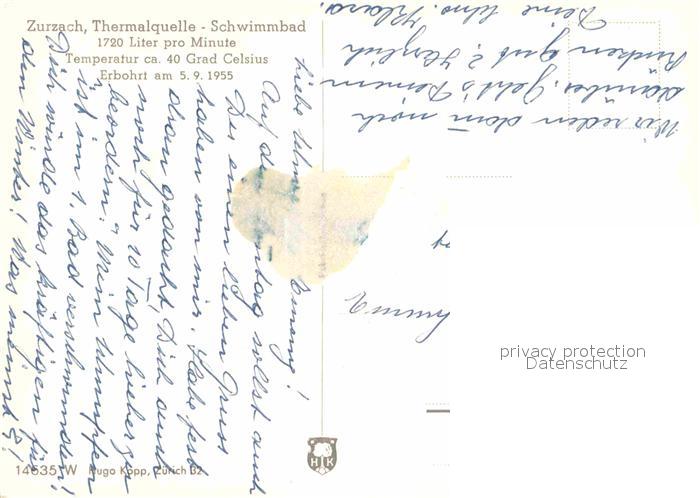 Zurzach, Thermalquelle - Schwimmbad
1720 Liter pro Minute
Temperatur ca. 40 Grad Celsius
Erbohrt am 5. 9. 1955
Liebe
Auf den sollst auch
Du einen lieben Gruss
haben von mir. Habe fest
daran gedacht Dich auch
noch für 10 Tage hieher zu
beordern. Mein Schnupfen
ist im 1. Bad verschwunden!
Dich würde das kräftigen für
den Winter! Was meinst D!
Wir reden dann noch
darüber. Geht's Deinem
Rücken gut? Herzlich
Deine Klara.
14635 W Hugo Kopp, Zürich 32
H K
privacy protection
Datenschutz